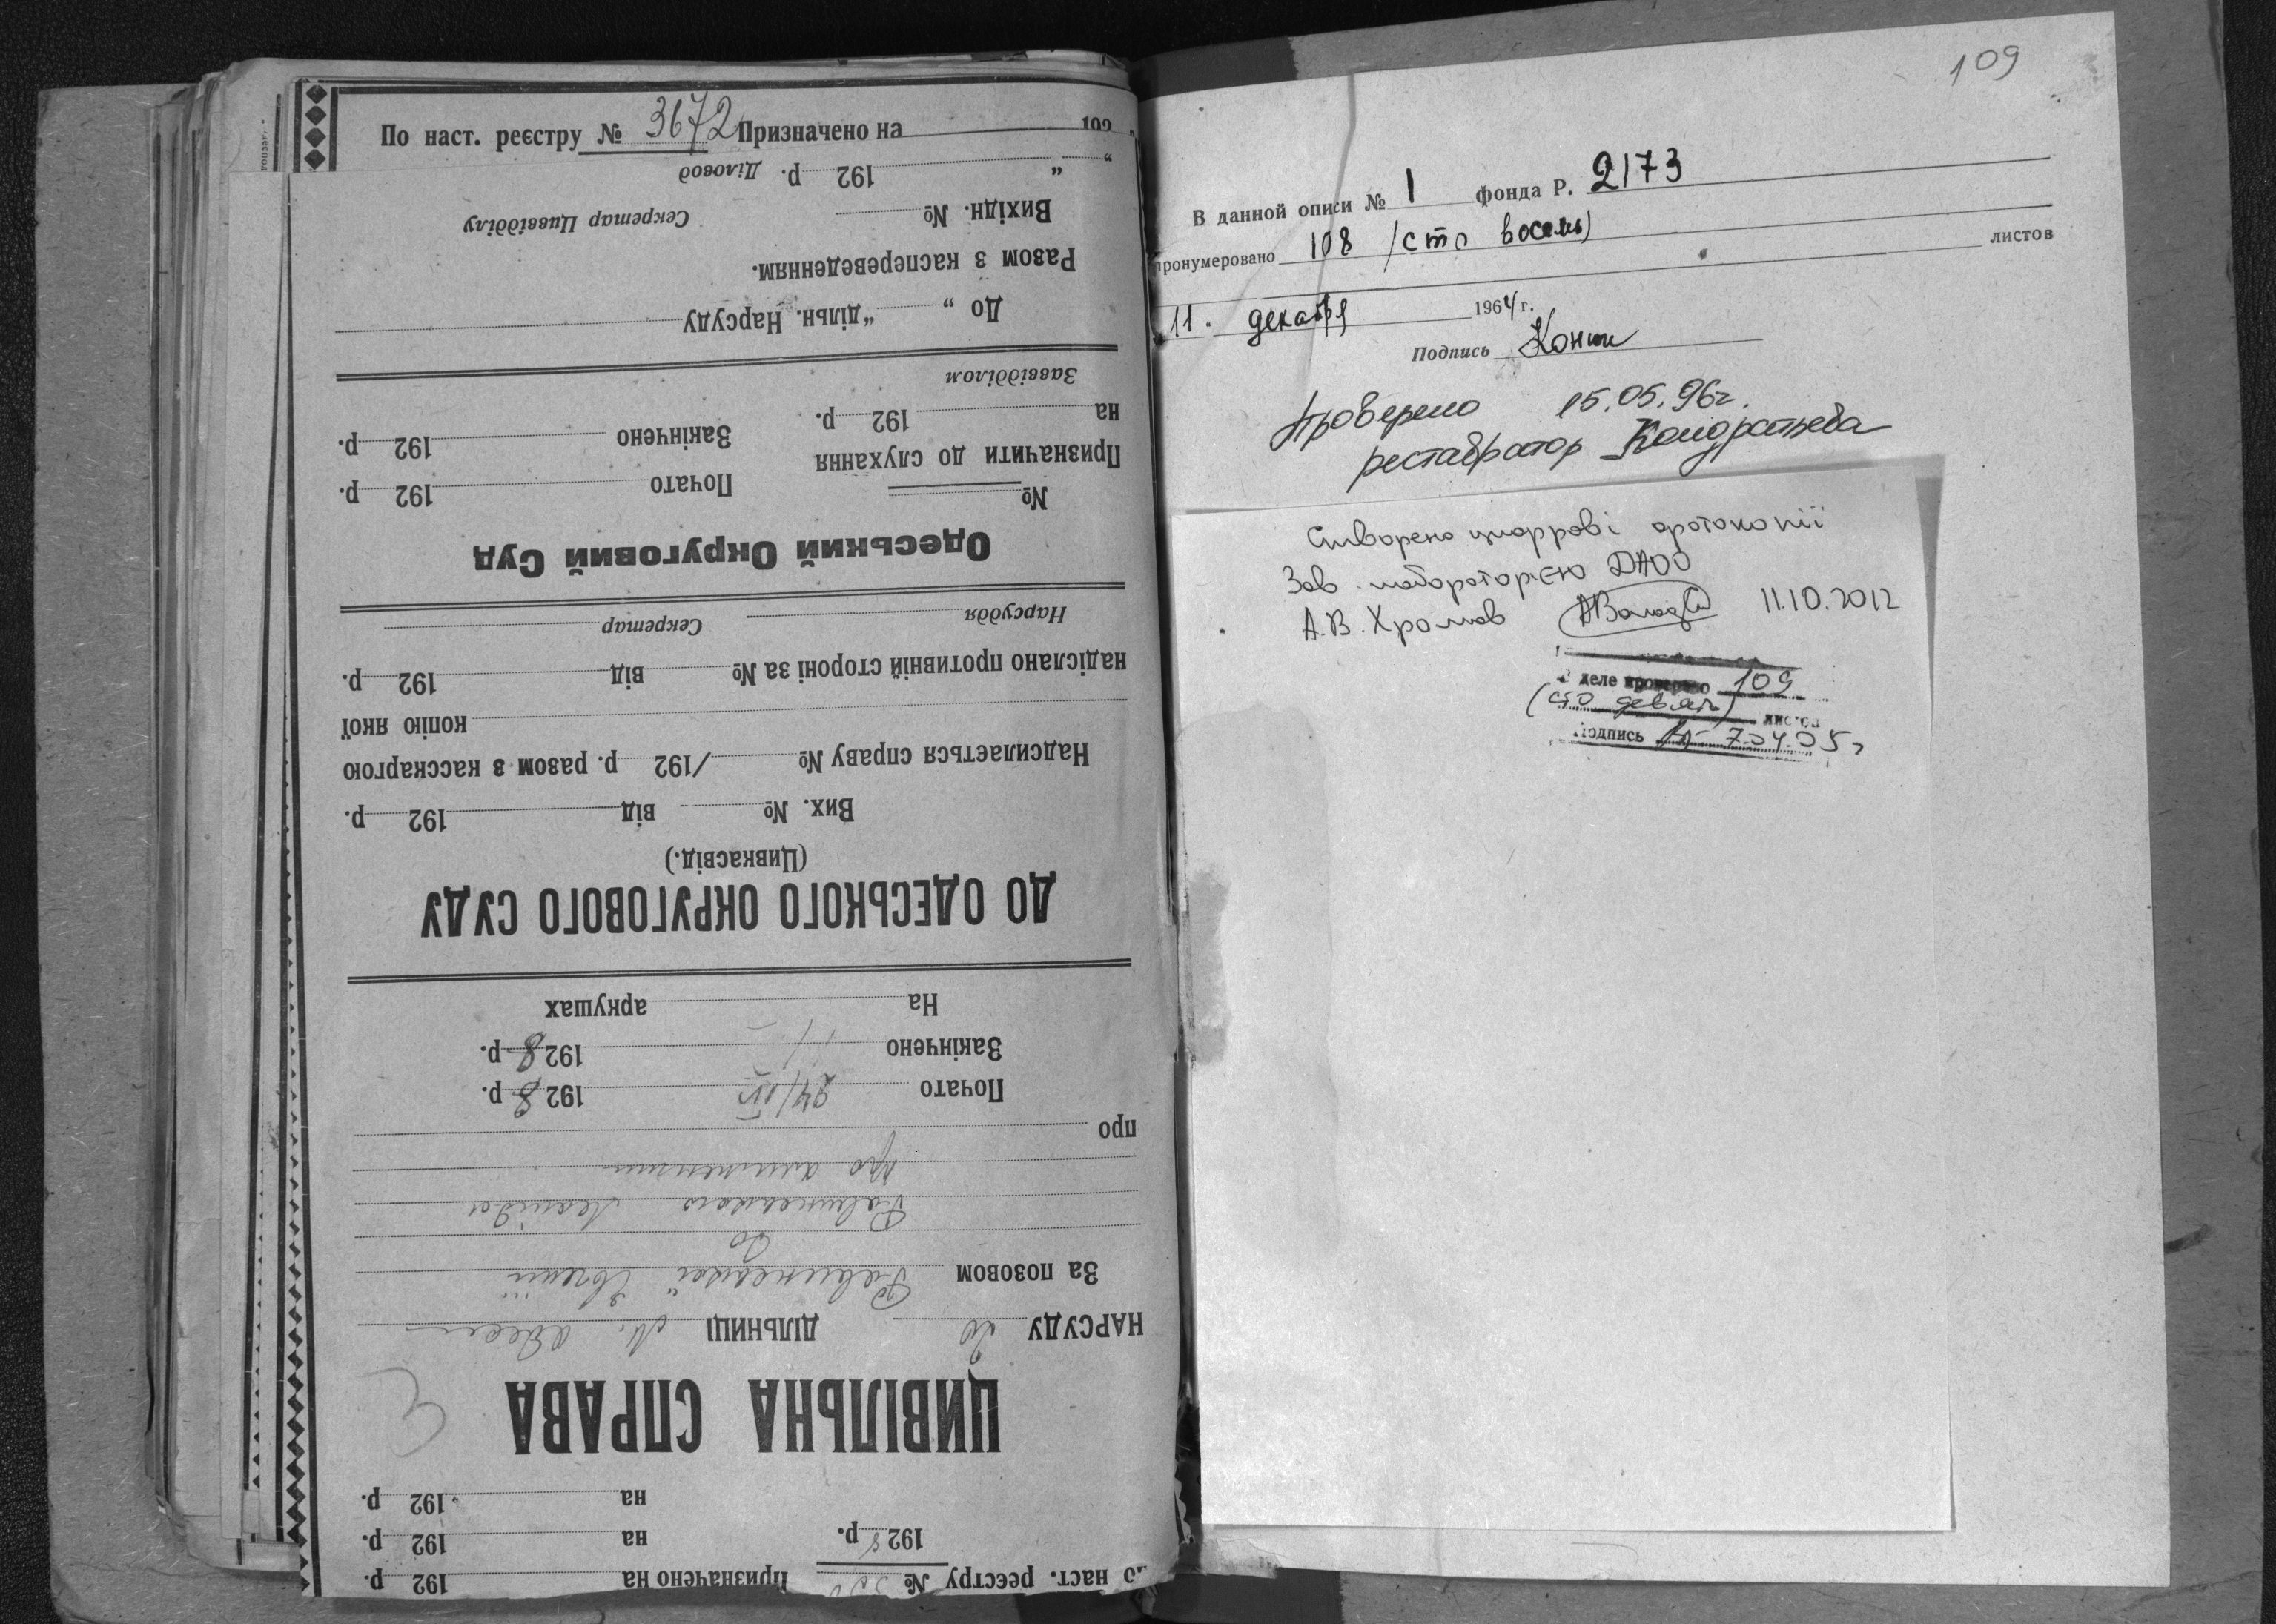 По наст. реєстру № 3672 Призначено на 192
До наст. реєстру № Призначено на 192 р.
1928 р. на 192 р.
на 192 р.
ЦИВІЛЬНА СПРАВА
НАРСУДУ 20 ДІЛЬНИЦІ М. Одеси
За позовом
до
про алименти
про
Почато 24/IV 1928 р.
Закінчено 1928 р.
На аркушах
ДО ОДЕСЬКОГО ОКРУГОВОГО СУДУ
(Цивкасвід.)
Вих. № від 192 р.
Надсилається справу № /192 р. разом з касскаргою
копію якої
надіслано противній стороні за № від 192 р.
Нарсуддя Секретар
Одеський Округовий Суд
№ Почато 192 р.
Призначити до слухання Закінчено 192 р.
на 192 р.
Заввідділом
До „ “ дільн. Нарсуду
Разом з каспереведенням.
Вихідн. № Секретар Циввідділу
„ “ 192 р. Діловод
109
В данной описи № 1 фонда Р. 2173
пронумеровано 108 /сто восемь) листов
11. декабря 1964 г.
Подпись
Проверено 15.05.96г.
реставратор Кондратьева
Створено цифрові фотокопії
Зав. лабораторією ДАОО
А.В. Хромов 11.10.2012
В деле проверено 109
(сто девять) листов
Подпись 7.04.05г